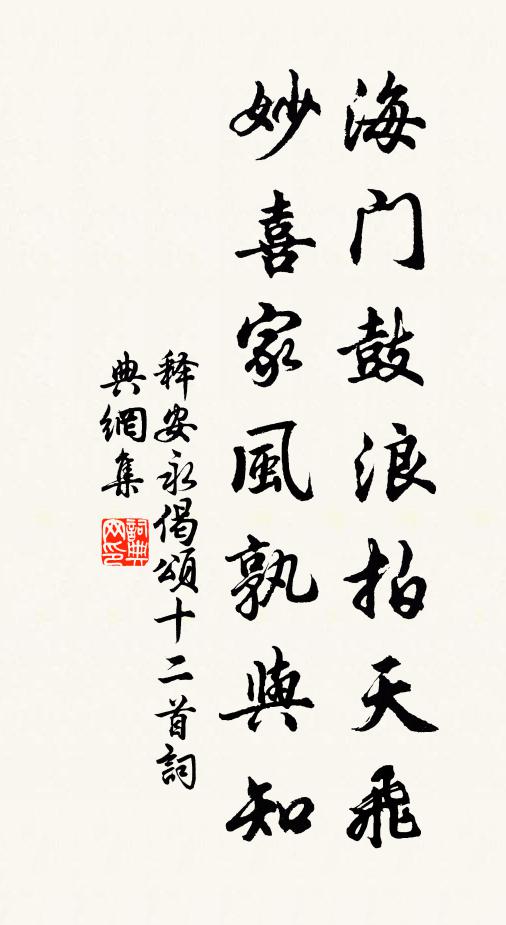 海门鼓浪拍天飛
妙喜家風孰與知
释安永偈頌十二首詞
典網集
詞典网印